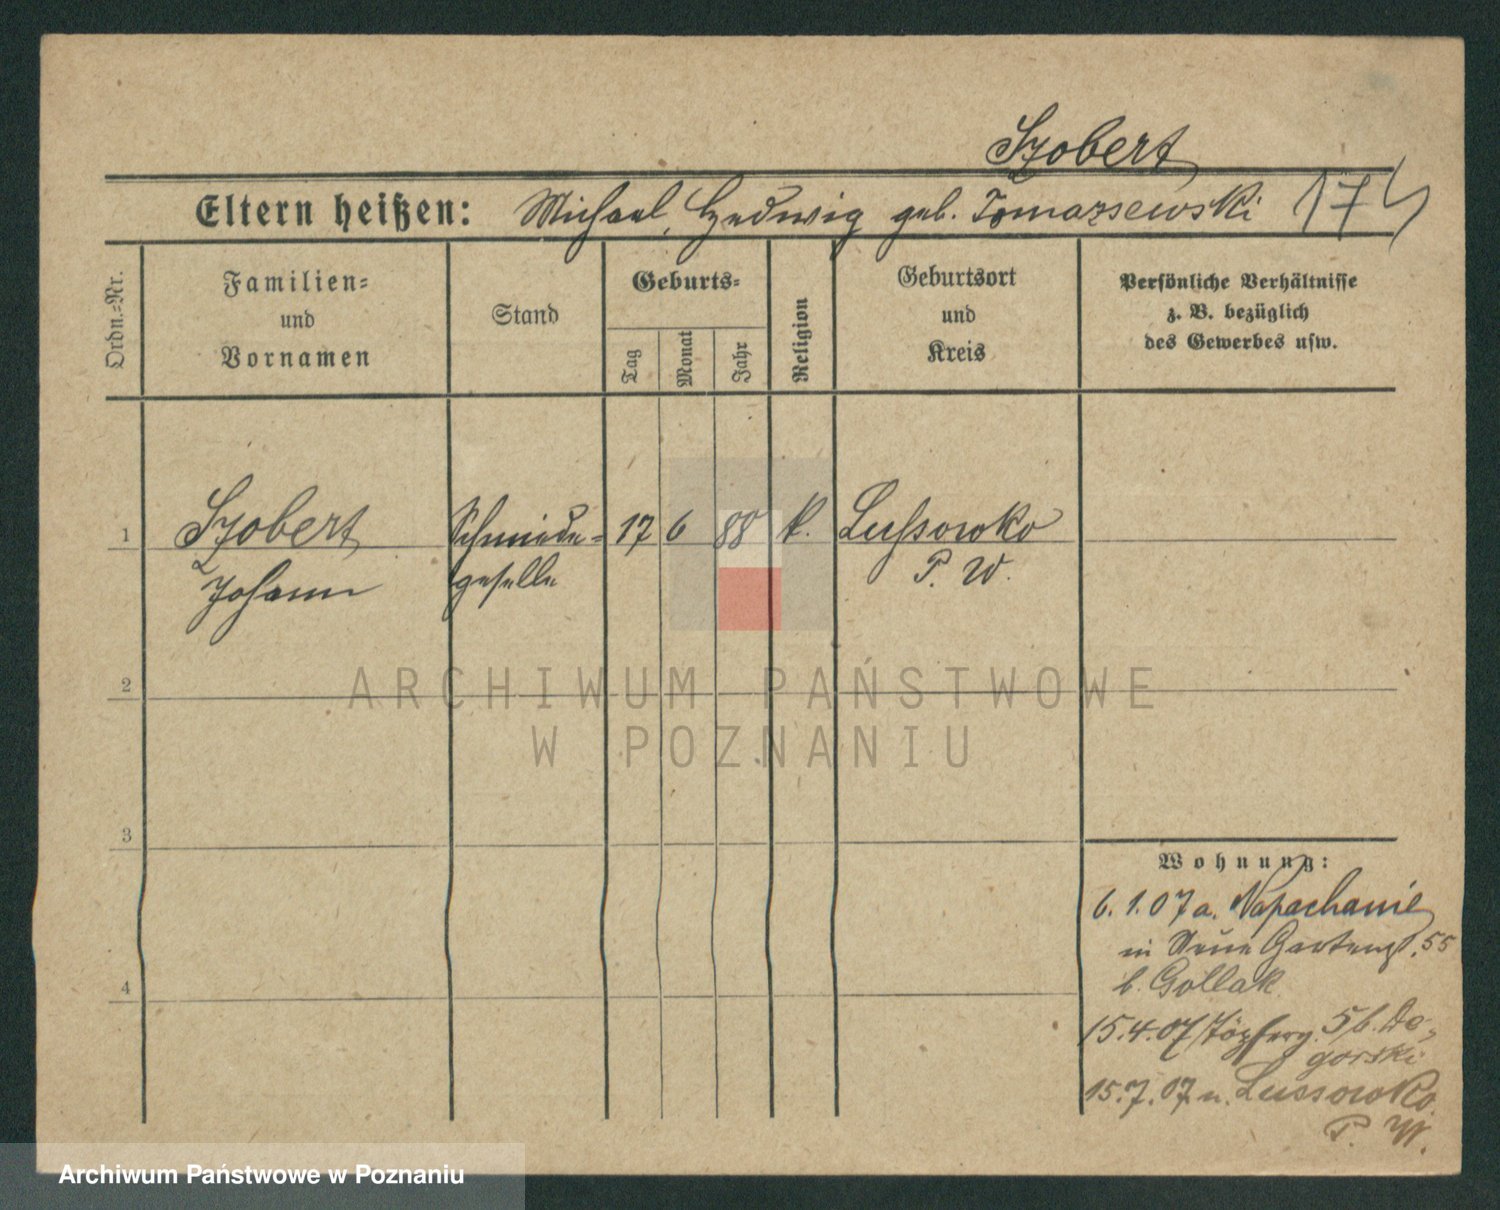 Szobert
Eltern heißen: Michael, Hedwig geb. Tomaszewski
Ordn.-Nr.
Familien-
und
Vornamen
Stand
Geburts-
Tag
Monat
Jahr
Religion
Geburtsort
und
Kreis
Persönliche Verhältnisse
z. B. bezüglich
des Gewerbes usw.
1 Szobert Schmiede- 17 6 88 k. Lussowko
Johann geselle P. W.
2
ARCHIWUM PAŃSTWOWE
W POZNANIU
3
Wohnung:
6.1.07 a. Napachanie
in Neue Gartenst. 55
4
b. Gollak
15.4.07 Töpferg. 5 b.
gorski
15.7.07 n. Lussowko
P. W.
Archiwum Państwowe w Poznaniu